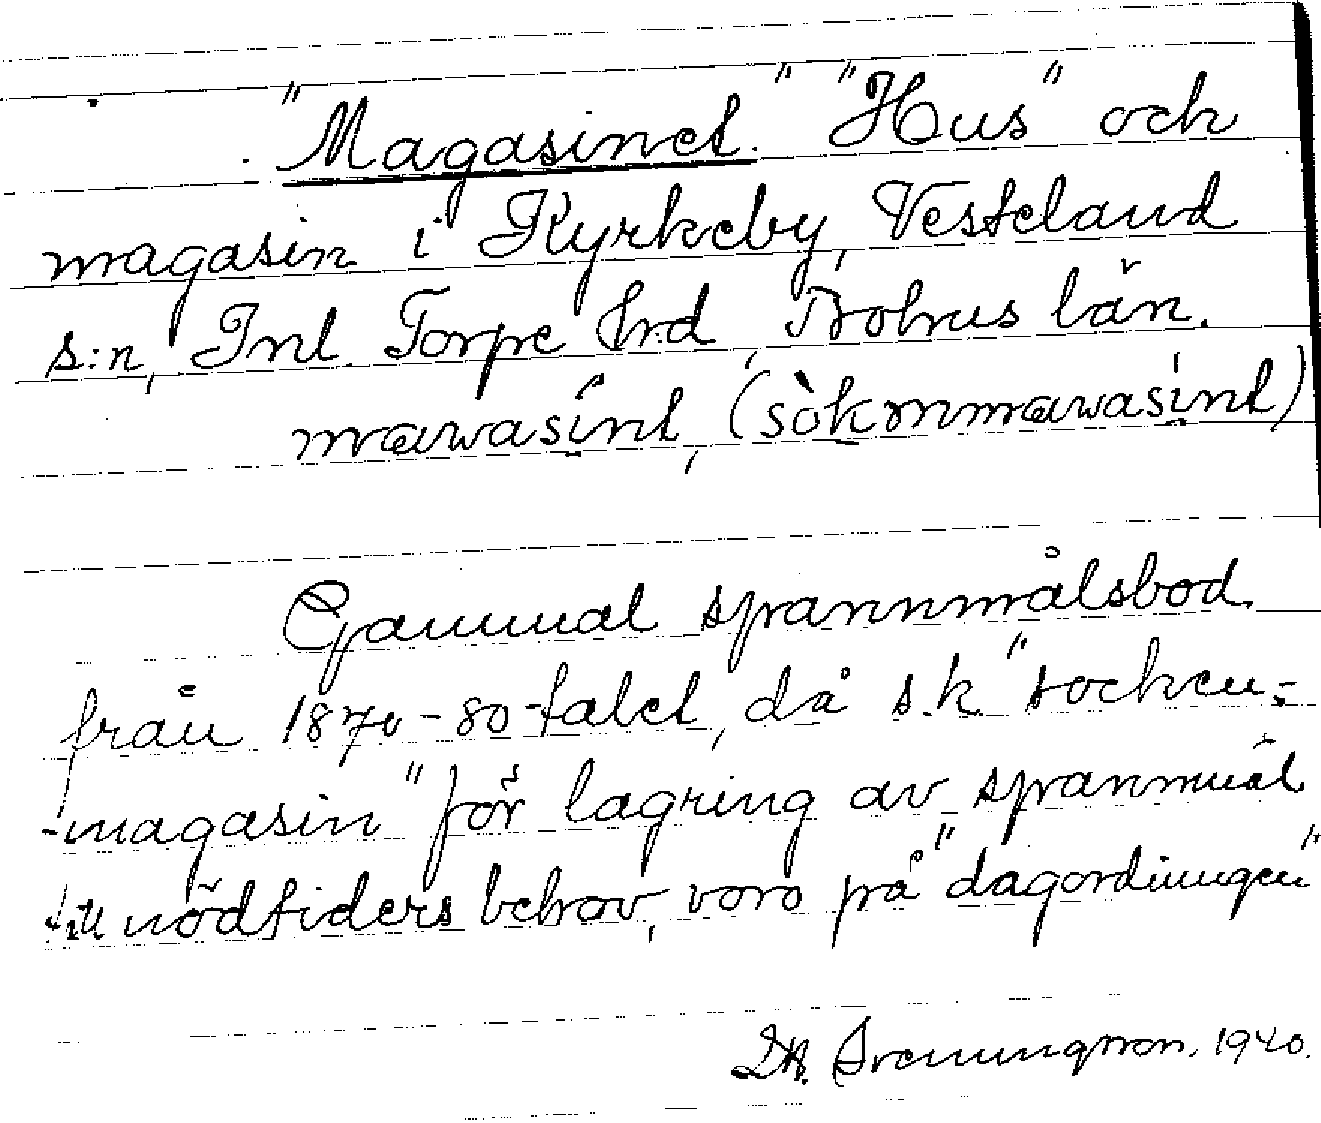 "Magasinet." "Hus" och
magasin i Kyrkeby, Vesteland
s:n, Inl. Torpe hrd, Bohus län.
mawasint, (sòkmmawasint)
Gammal spannmålsbod
från 1870-80-talet, då s.k. "socken-
-magasin" för lagring av spanmål
till nödtiders behov, voro på "dagordningen"
1940.